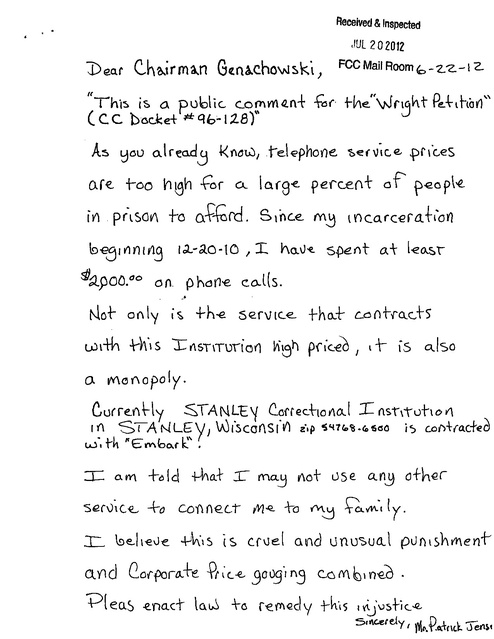 Received & Inspected
JUL 20 2012
FCC Mail Room
6-22-12
Dear Chairman Genachowski,
"This is a public comment for the "Wright Petition"
(CC Docket #96-128)"
As you already know, telephone service prices
are too high for a large percent of people
in prison to afford. Since my incarceration
beginning 12-20-10, I have spent at least
$2,000.00 on phone calls.
Not only is the service that contracts
with this Institution high priced, it is also
a monopoly.
Currently STANLEY Correctional Institution
in STANLEY, Wisconsin zip 54768-6500 is contracted
with "Embark".
I am told that I may not use any other
service to connect me to my family.
I believe this is cruel and unusual punishment
and Corporate Price gouging combined.
Pleas enact law to remedy this injustice
Sincerely, Mr. Patrick Jens